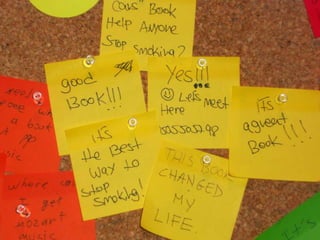 Book
Help Anyone
Stop Smoking?
good
Book!!!
Yes!!!
Let's meet
Here
It's
agreat
Book!!!!
It's
the Best
way to
stop
smoking!
THIS BOOK
CHANGED
MY
LIFE.
where
get
Mozart
music
It's